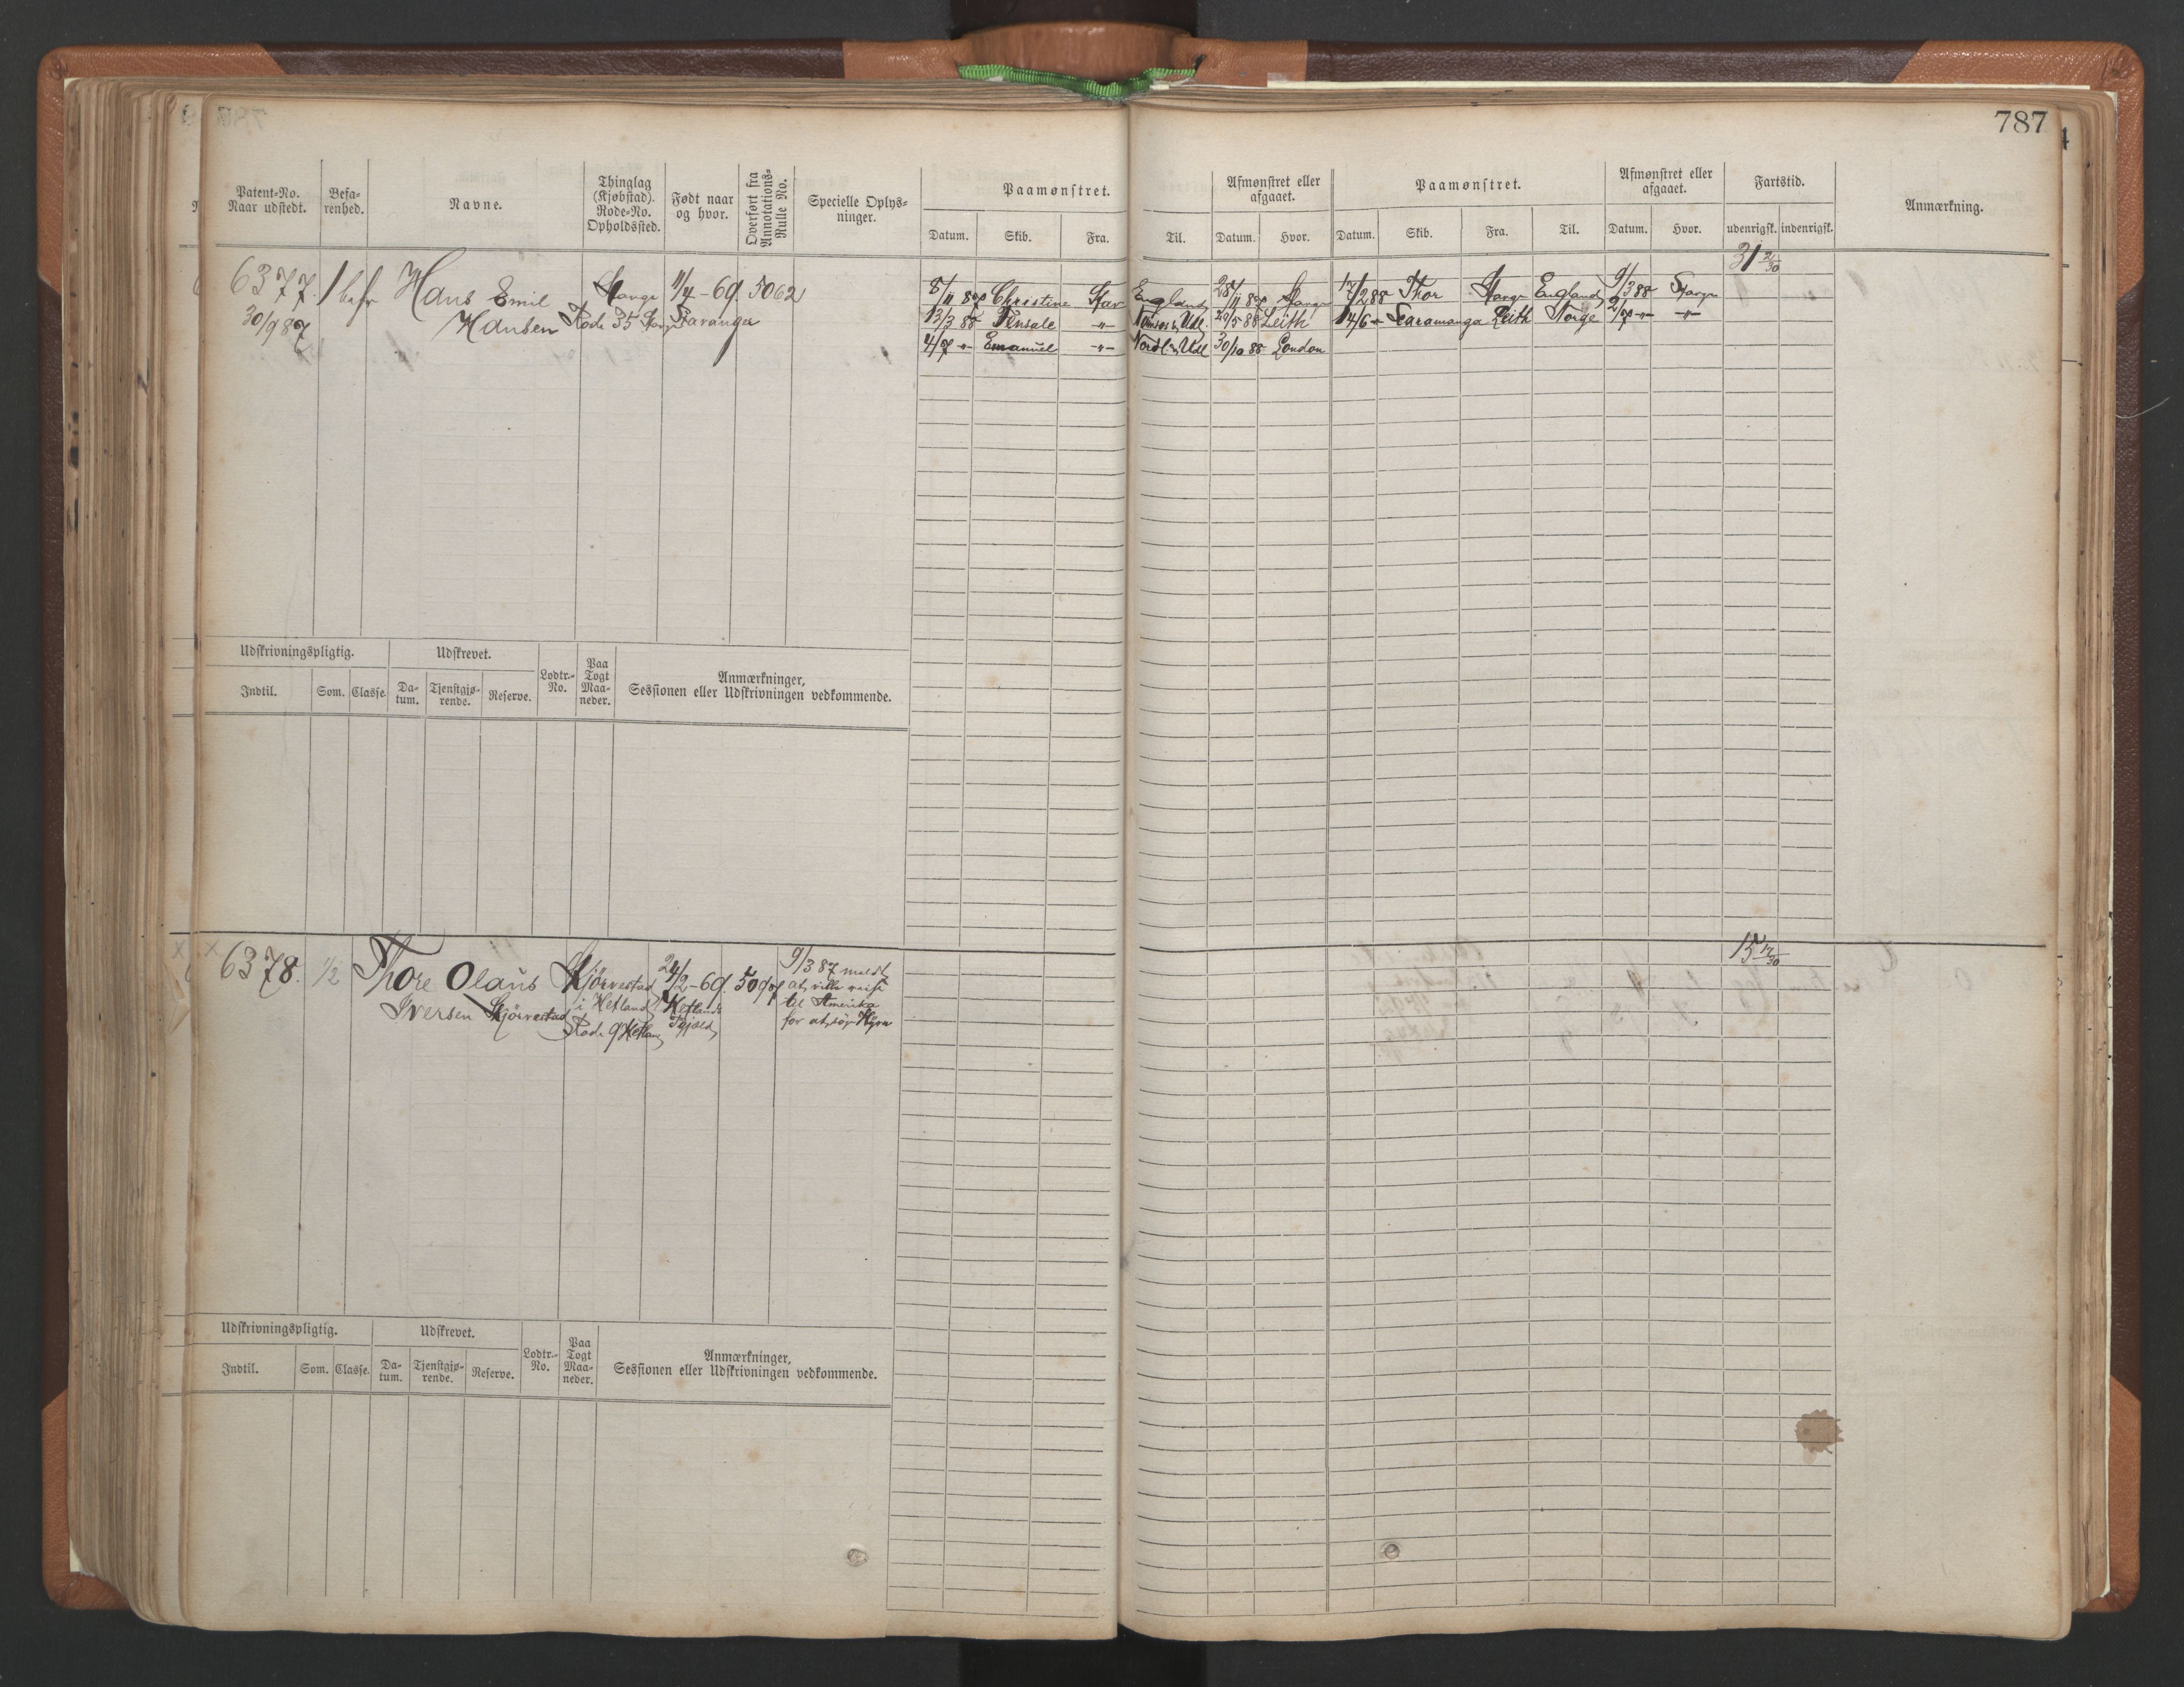 787
Patent-No.
Naar udstedt.
Befa-
renhed.
Navne.
Thinglag
(Kjøbstad).
Rode-No.
Opholdssted.
Født naar
og hvor.
Overført fra
Annotations-
Rulle No.
Specielle Oplys-
ninger.
Paamønstret.
Datum. Skib. Fra. Til.
Afmønstret eller
afgaaet.
Datum. Hvor.
Paamønstret.
Datum. Skib. Fra. Til.
Afmønstret eller
afgaaet.
Datum. Hvor.
Fartstid.
udenrigsk. indenrigsk.
Anmærkning.
6377.
30/9 87
Hans Emil
Hansen
Rode 35
11/4-69.
Stavanger
5062
8/11 87 Christine Stav England 28/11 87
17/2 88 Thor England 9/3 88
31 21/30
13/3 88 -"- Udl. 20/5 88 Leith
14/6 -"- Scaramanga Leith Norge 2/7 -"- -"-
4/7 -"- Emanuel -"- Udl 30/10 88 London
Udskrivningspligtig.
Indtil. Som. Classe.
Udskrevet.
Da-
tum.
Tjenstgjø-
rende.
Reserve.
Lodtr.-
No.
Paa
Togt
Maa-
neder.
Anmærkninger,
Sessionen eller Udskrivningen vedkommende.
6378. 1/2
Thore Olaus
Iversen Kjörvestad
Kjörvestad
i Hetland
Rode 9 Hetland
24/2-69.
Hetlands
9/3 87 meldt
at ville reise
til Amerika
for at søge Hyre
15 12/30
Udskrivningspligtig.
Indtil. Som. Classe.
Udskrevet.
Da-
tum.
Tjenstgjø-
rende.
Reserve.
Lodtr.-
No.
Paa
Togt
Maa-
neder.
Anmærkninger,
Sessionen eller Udskrivningen vedkommende.